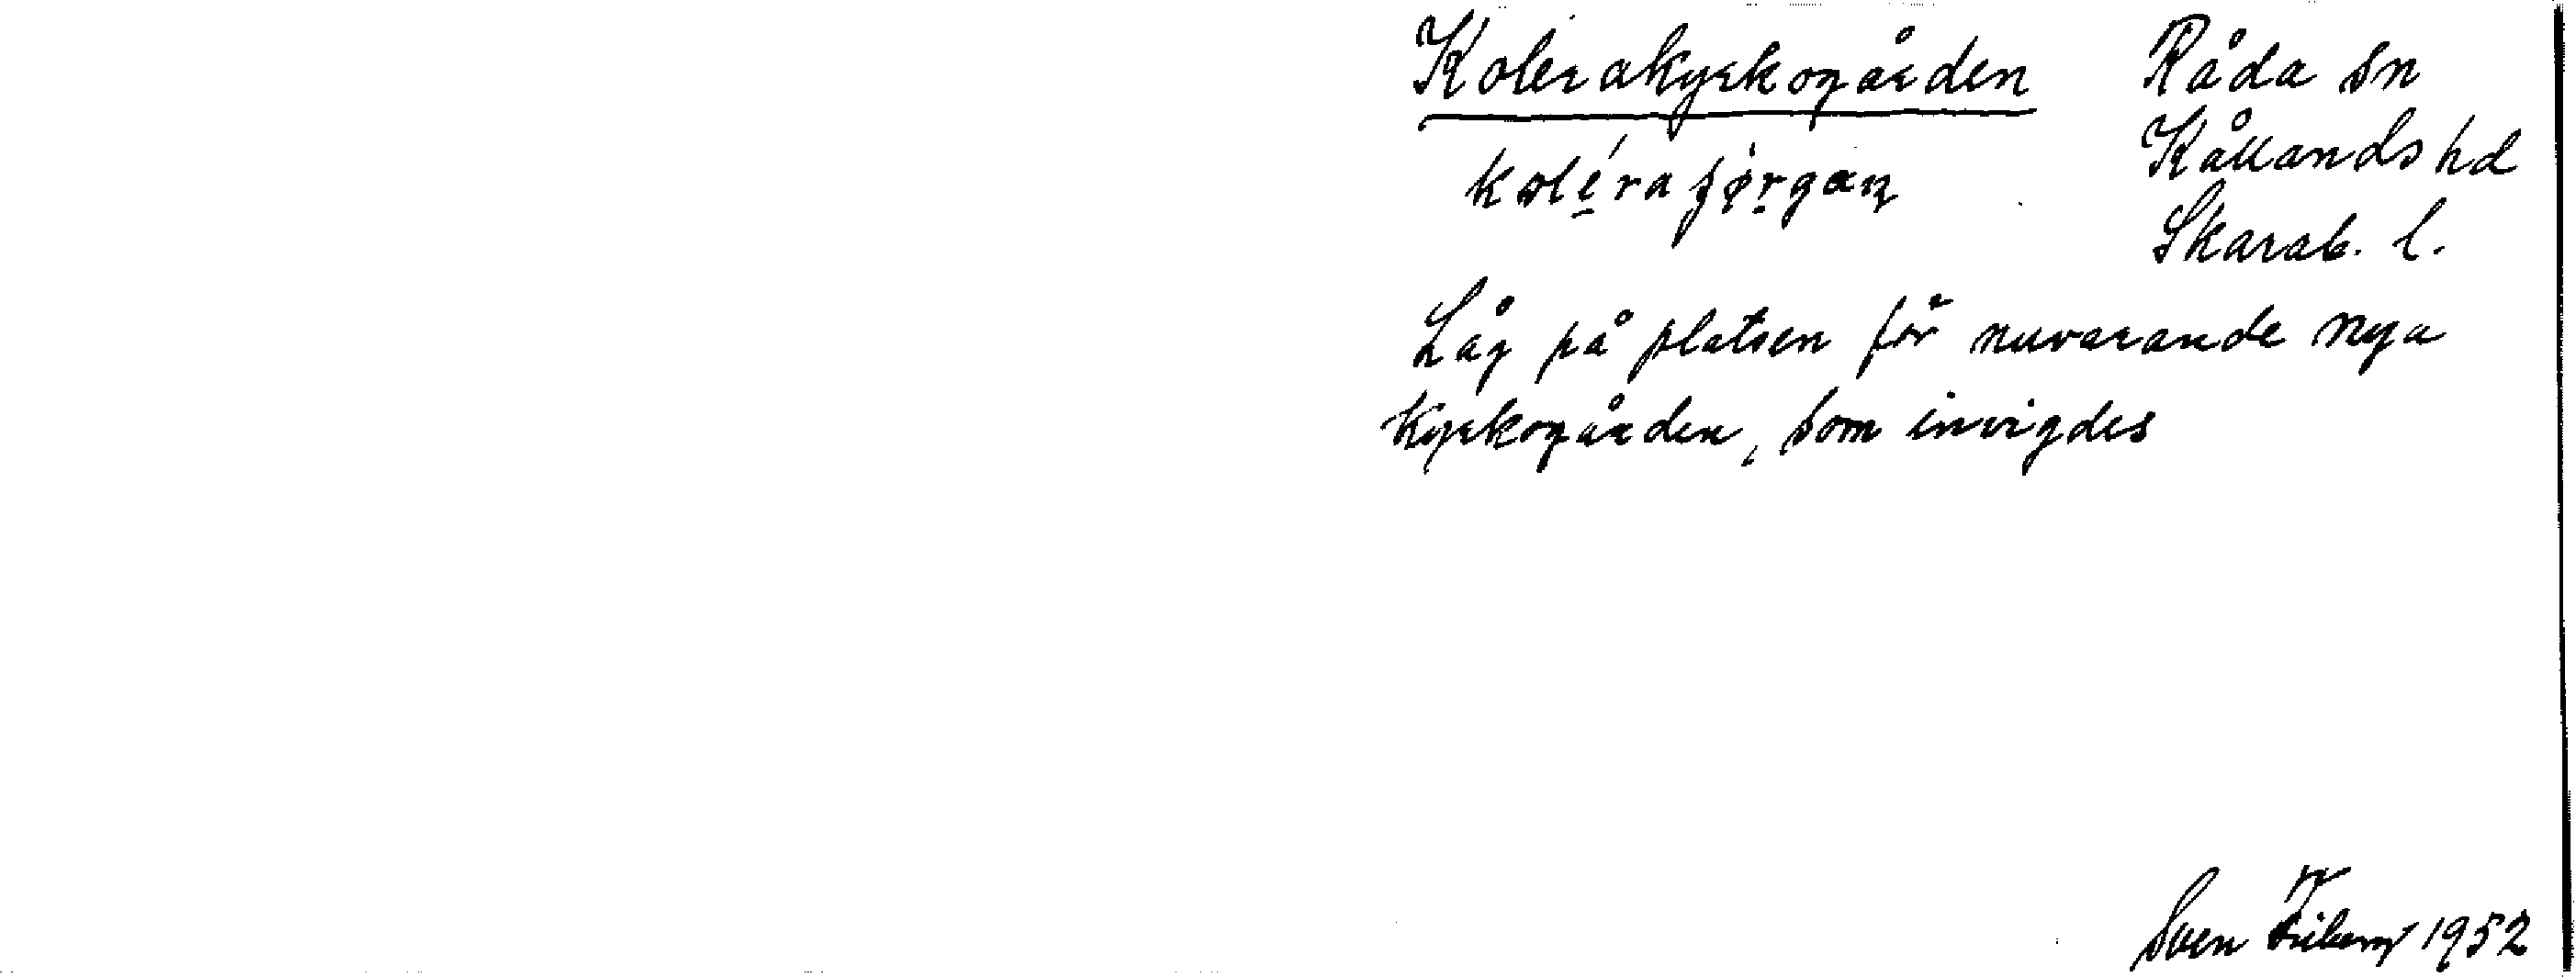 Kolerakyrkogården
Råda sn
Kållands hd
Skarab. l.
Låg på platsen för nuvarande nya
kyrkogården, som invigdes
Sven Friberg 1952